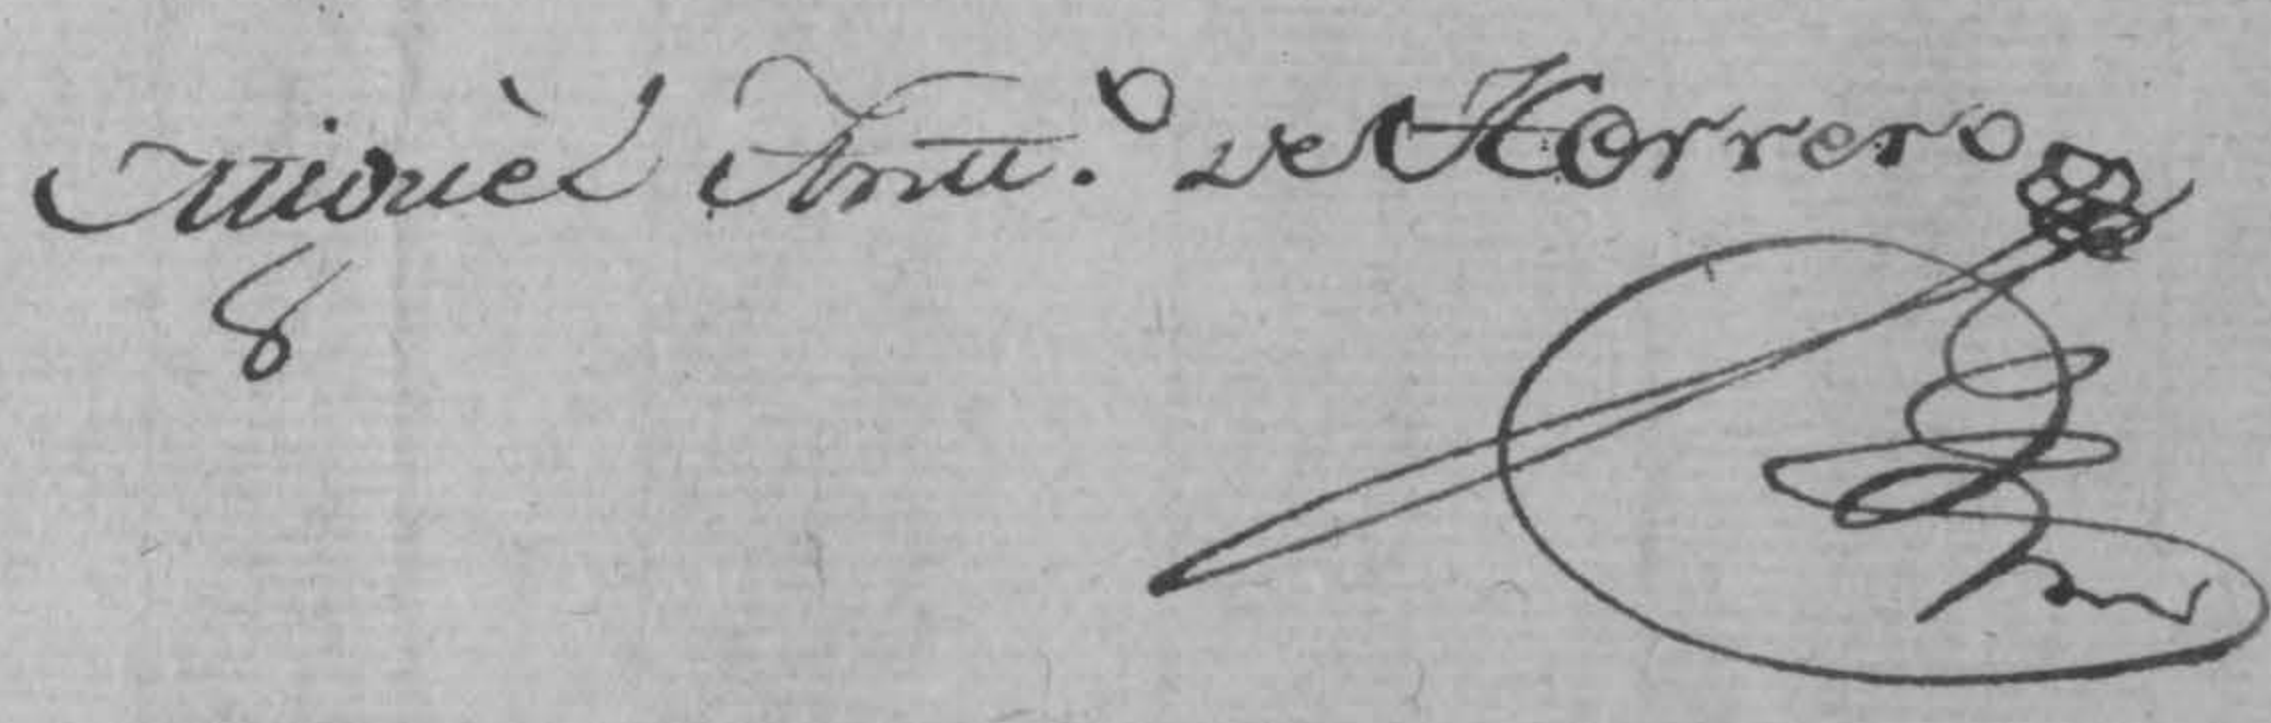 Miguèl Antt.º de Horrero